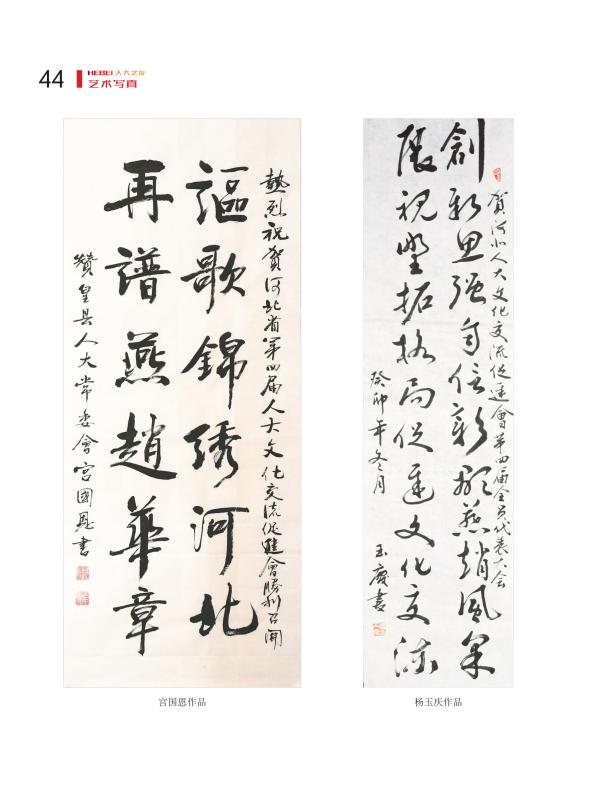 44
HEBEI 人大之友
艺术写真
熱烈祝賀河北省第四届人大文化交流促進會勝利召開
謳歌錦绣河北
再譜燕趙華章
赞皇县人大常委會宫國恩書
賀河北人大文化交流促進會第四届全员代表大会
創新思强自信彰顯燕趙風采
展視野拓格局促進文化交流
癸卯年冬月
玉慶書
宫国恩作品
杨玉庆作品